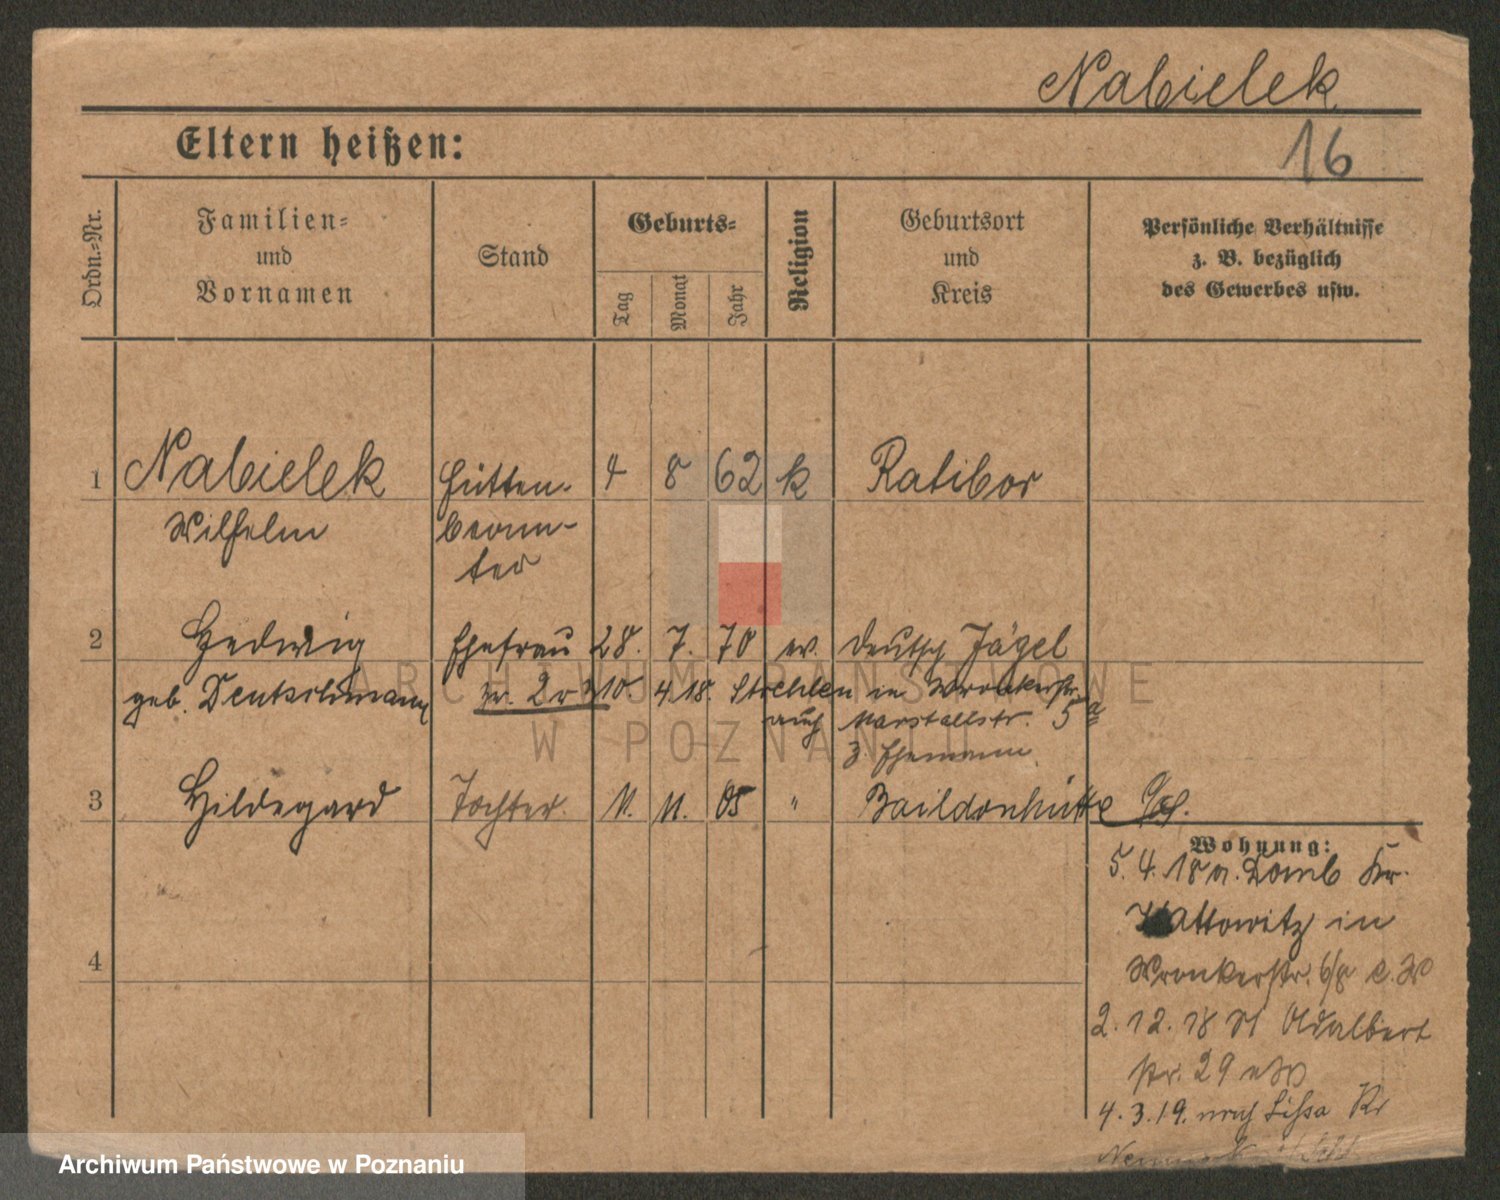 Nabielek
16
Eltern heißen:
Ordn.=Nr.
Familien=
und
Vornamen
Stand
Geburts=
Tag
Monat
Jahr
Religion
Geburtsort
und
Kreis
Persönliche Verhältnisse
z. B. bezüglich
des Gewerbes usw.
1 Nabielek Hütten- 4 8 62 k Ratibor
Wilhelm beam-
ter
2 Hedwig Ehefrau 28. 7. 70 ev. Deutsch Jägel
geb. Deutschmann zu. 2 u 3 10. 4. 18. Strehlen in Wronkerstr. 5a
auch Marstallstr.
z. Ehemann
3 Hildegard Tochter. 11. 11. 05 " Baildonhütte
Wohnung:
5. 4. 18 v. Domb Kr.
Kattowitz in
Wronkerstr. 6/8
2. 12. 18 St Adalbert
str. 29
4. 3. 19. nach Lissa Kr
4
ARCHIWUM PAŃSTWOWE
W POZNANIU
Archiwum Państwowe w Poznaniu